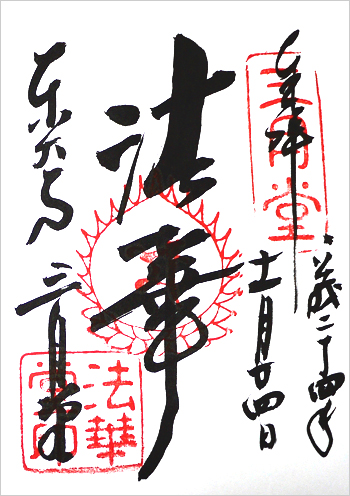 奉拝
三月堂
平成二十四年
十一月廿四日
法華
東大寺
三月堂
法華
堂印